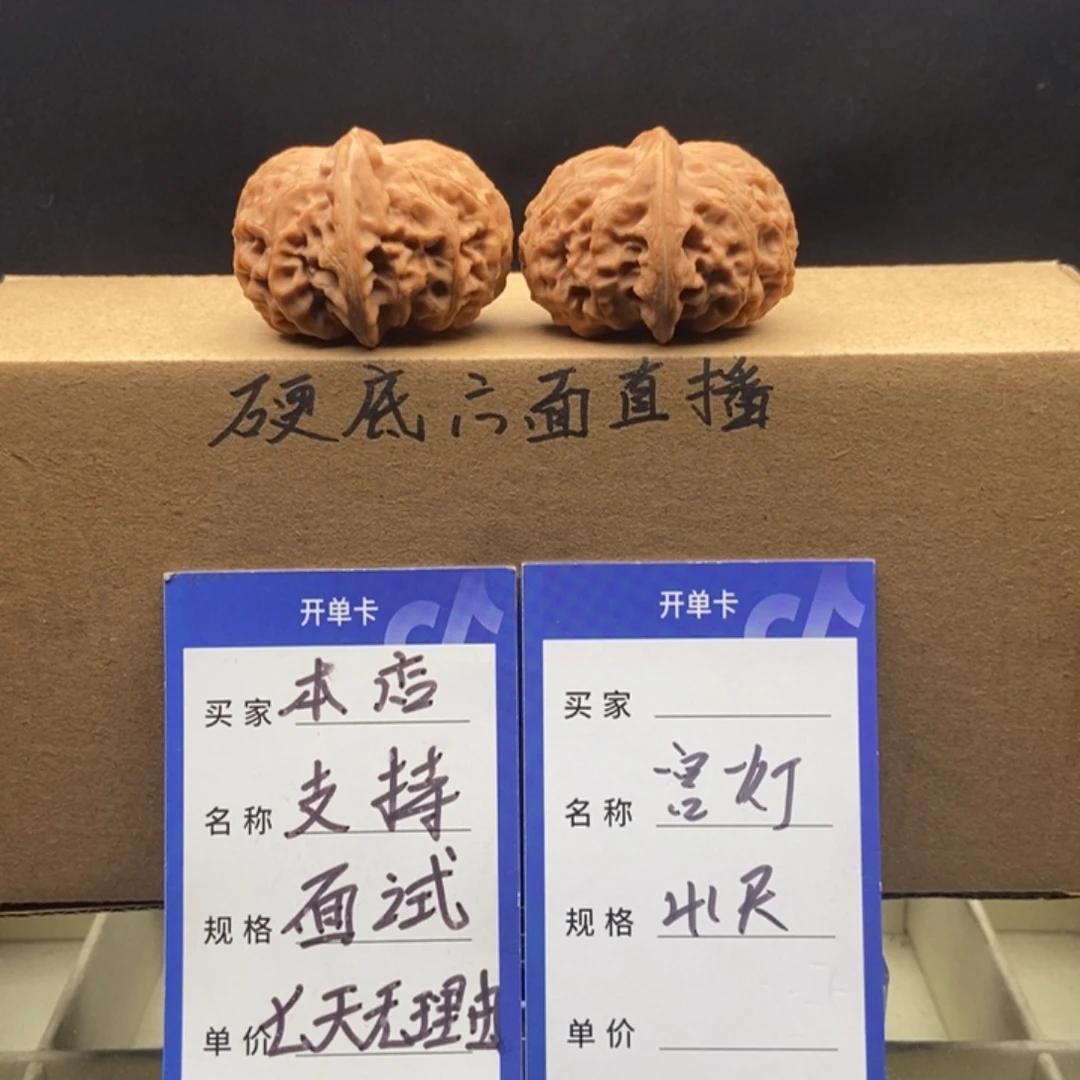 硬底六面直播
开单卡
买家 本店
名称 支持
规格 面试
单价 七天无理由
开单卡
买家
名称 宫灯
规格
单价